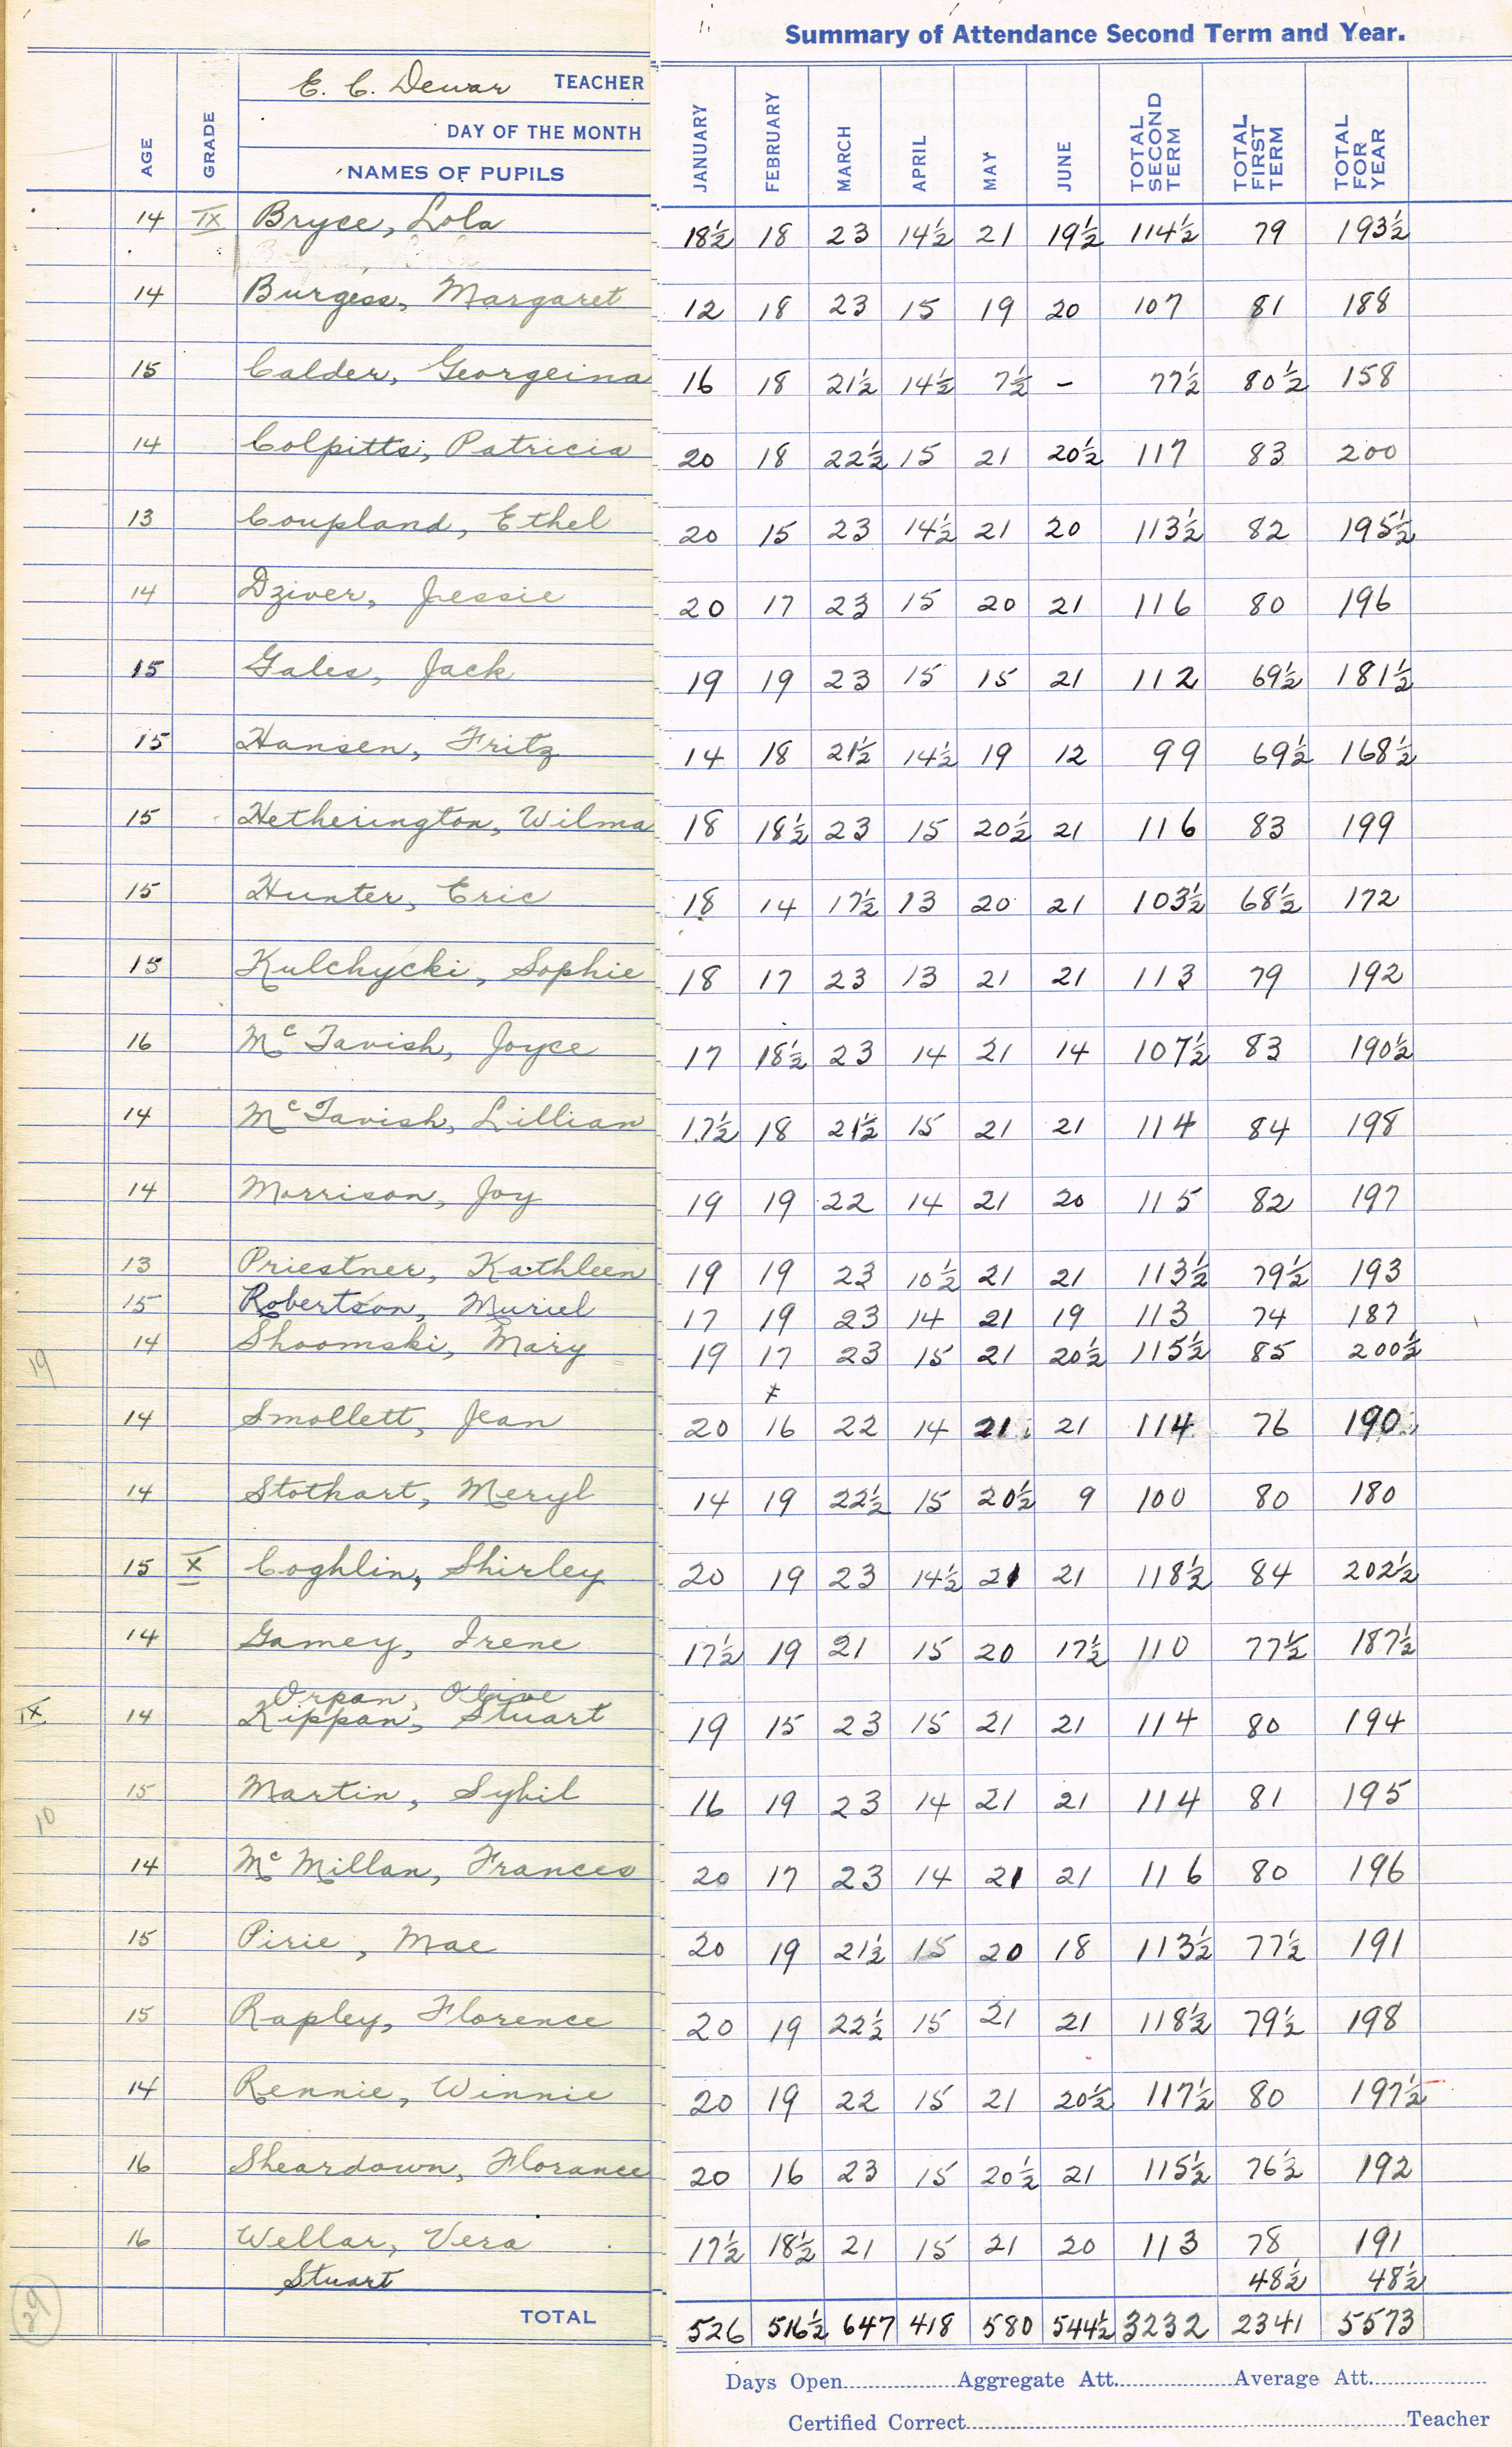 Summary of Attendance Second Term and Year.
E. C. Dewar TEACHER
DAY OF THE MONTH
AGE GRADE NAMES OF PUPILS JANUARY FEBRUARY MARCH APRIL MAY JUNE TOTAL SECOND TERM TOTAL FIRST TERM TOTAL FOR YEAR
14 IX Bryce, Lola 18½ 18 23 14½ 21 19½ 114½ 79 193½
14 Burgess, Margaret 12 18 23 15 19 20 107 81 188
15 Calder, Georgeina 16 18 21½ 14½ 7½ – 77½ 80½ 158
14 Colpitts, Patricia 20 18 22½ 15 21 20½ 117 83 200
13 Coupland, Ethel 20 15 23 14½ 21 20 113½ 82 195½
14 Dziver, Jessie 20 17 23 15 20 21 116 80 196
15 Gales, Jack 19 19 23 15 15 21 112 69½ 181½
15 Hansen, Fritz 14 18 21½ 14½ 19 12 99 69½ 168½
15 Hetherington, Wilma 18 18½ 23 15 20½ 21 116 83 199
15 Hunter, Eric 18 14 17½ 13 20 21 103½ 68½ 172
15 Kulchycki, Sophie 18 17 23 13 21 21 113 79 192
16 McTavish, Joyce 17 18½ 23 14 21 14 107½ 83 190½
14 McTavish, Lillian 17½ 18 21½ 15 21 21 114 84 198
14 Morrison, Joy 19 19 22 14 21 20 115 82 197
13 Priestner, Kathleen 19 19 23 10½ 21 21 113½ 79½ 193
15 Robertson, Muriel 17 19 23 14 21 19 113 74 187
19 14 Shoomski, Mary 19 17 23 15 21 20½ 115½ 85 200½
14 Smollett, Jean 20 16 22 14 21 21 114 76 190
14 Stothart, Meryl 14 19 22½ 15 20½ 9 100 80 180
15 X Coghlin, Shirley 20 19 23 14½ 21 21 118½ 84 202½
14 Gamey, Irene 17½ 19 21 15 20 17½ 110 77½ 187½
Orpan, Olive
IX 14 Kippan, Stuart 19 15 23 15 21 21 114 80 194
15 Martin, Sybil 16 19 23 14 21 21 114 81 195
10
14 McMillan, Frances 20 17 23 14 21 21 116 80 196
15 Pirie, Mae 20 19 21½ 15 20 18 113½ 77½ 191
15 Rapley, Florence 20 19 22½ 15 21 21 118½ 79½ 198
14 Rennie, Winnie 20 19 22 15 21 20½ 117½ 80 197½
16 Sheardown, Florance 20 16 23 15 20½ 21 115½ 76½ 192
16 Wellar, Vera 17½ 18½ 21 15 21 20 113 78 191
Stuart 48½ 48½
29 TOTAL 526 516½ 647 418 580 544½ 3232 2341 5573
Days Open Aggregate Att. Average Att.
Certified Correct Teacher